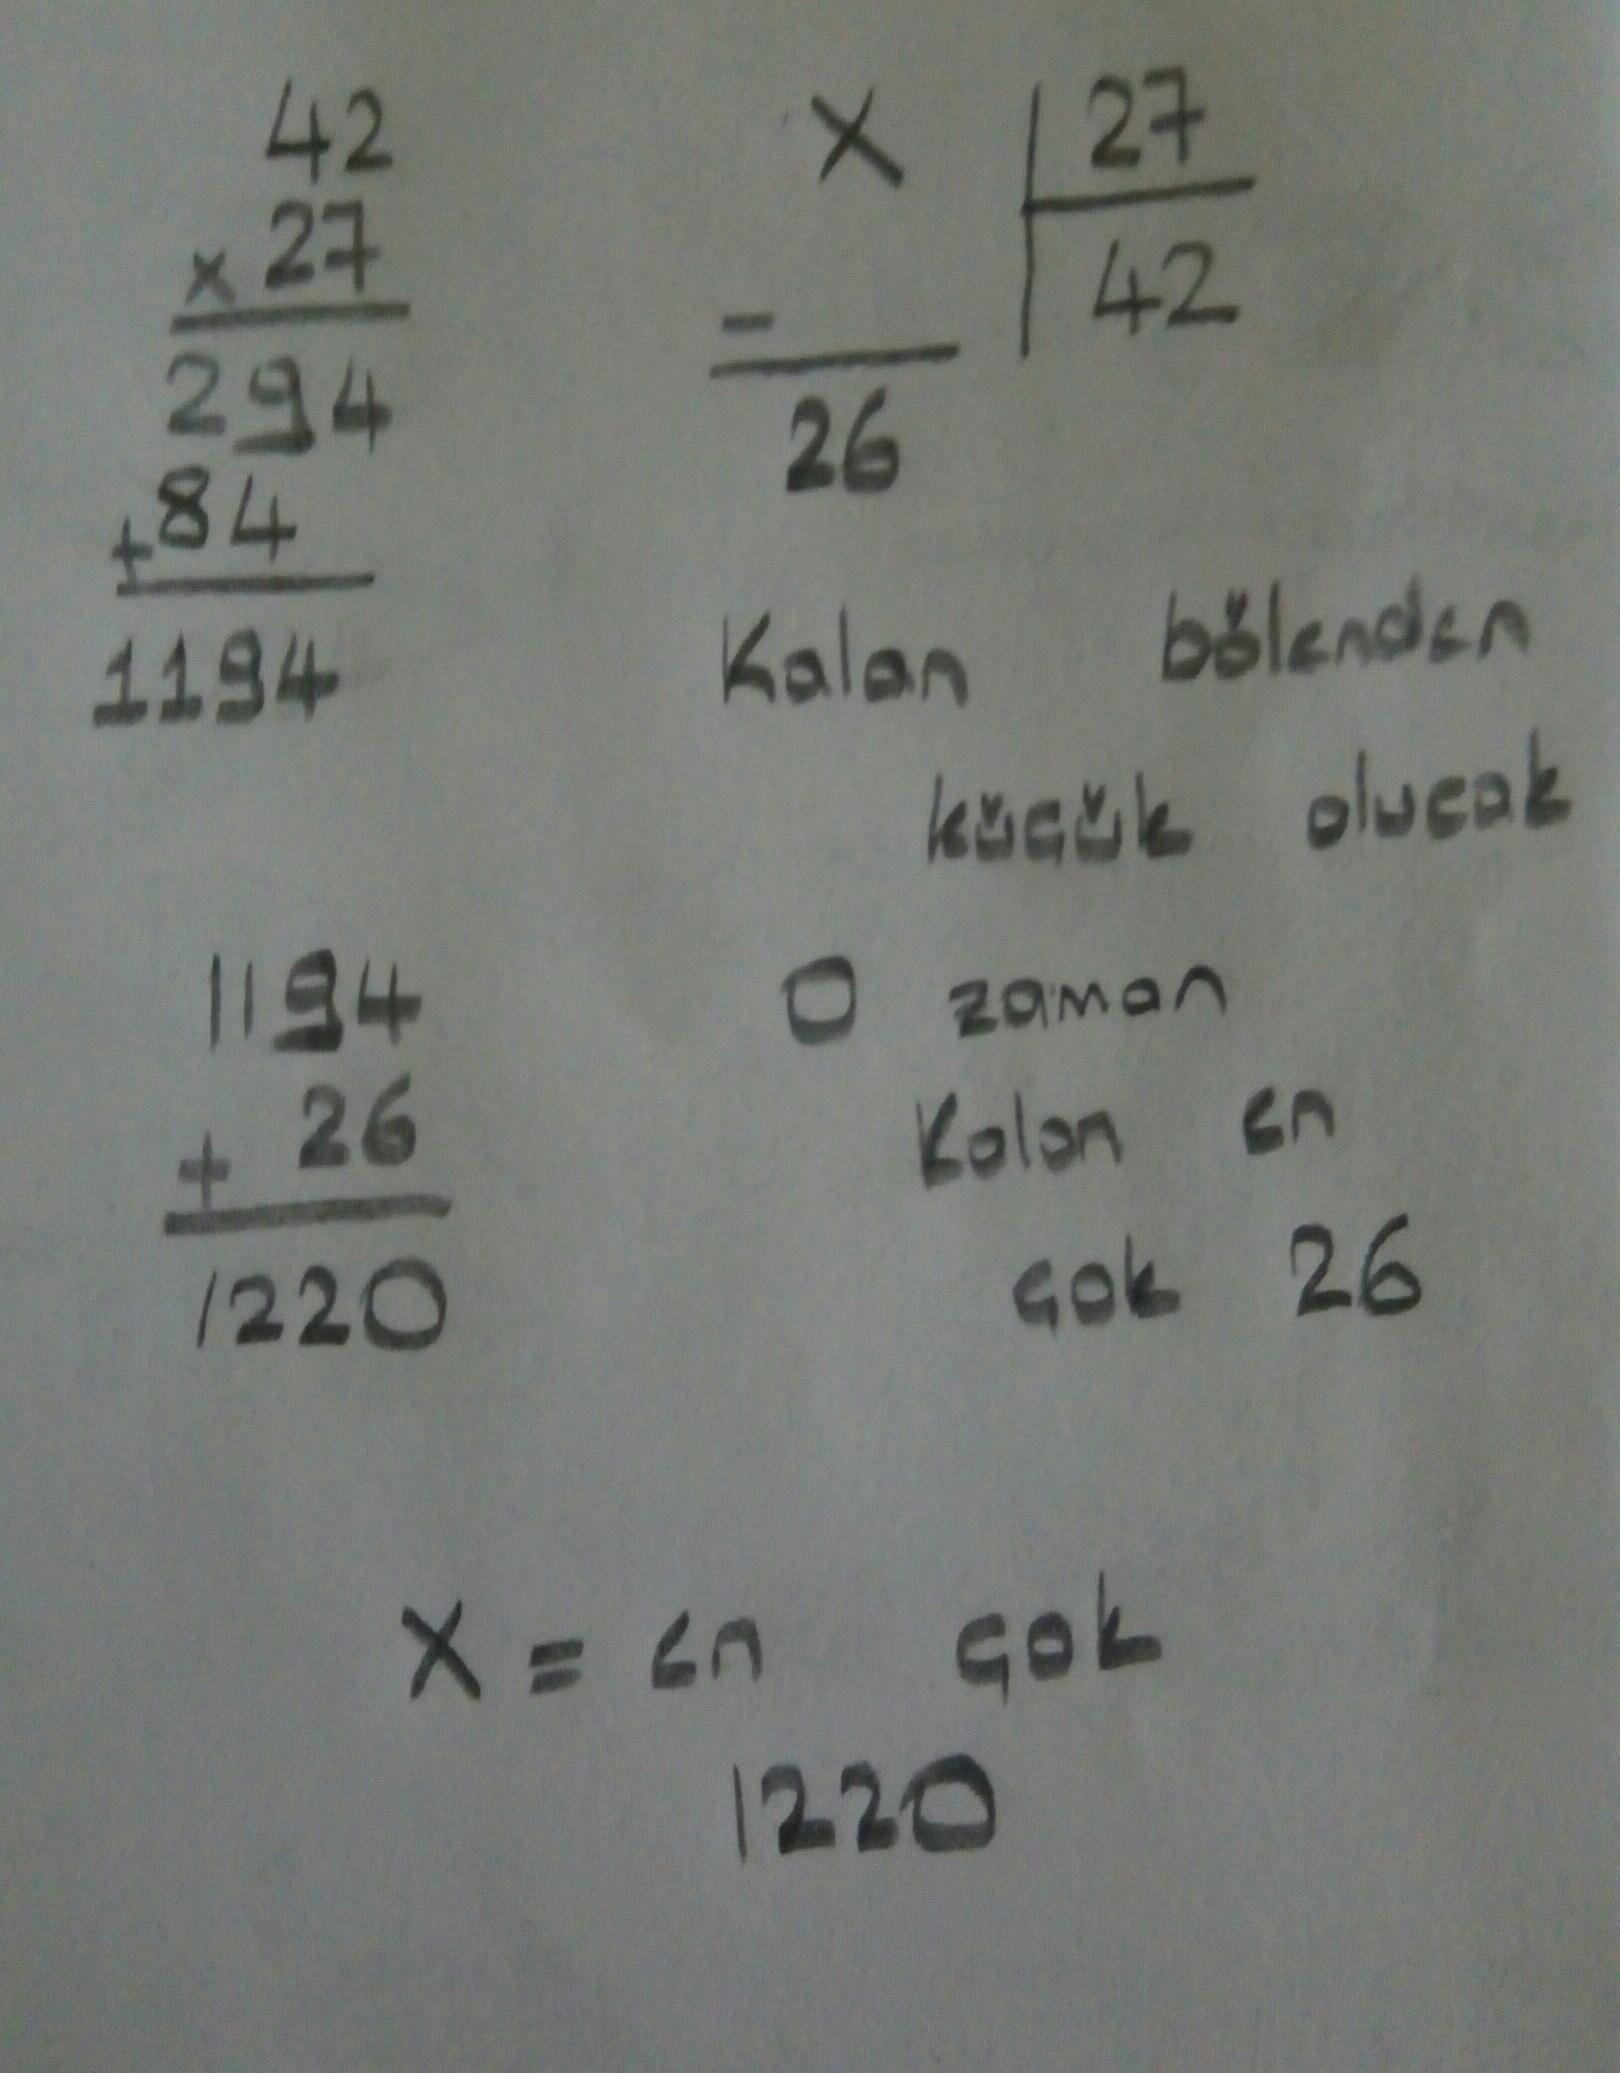 42
x 27
294
+84
1194
x 27
42
-
26
Kalan bölenden
küçük olucak
1194
+ 26
1220
O zaman
Kalan en
çok 26
X = en çok
1220